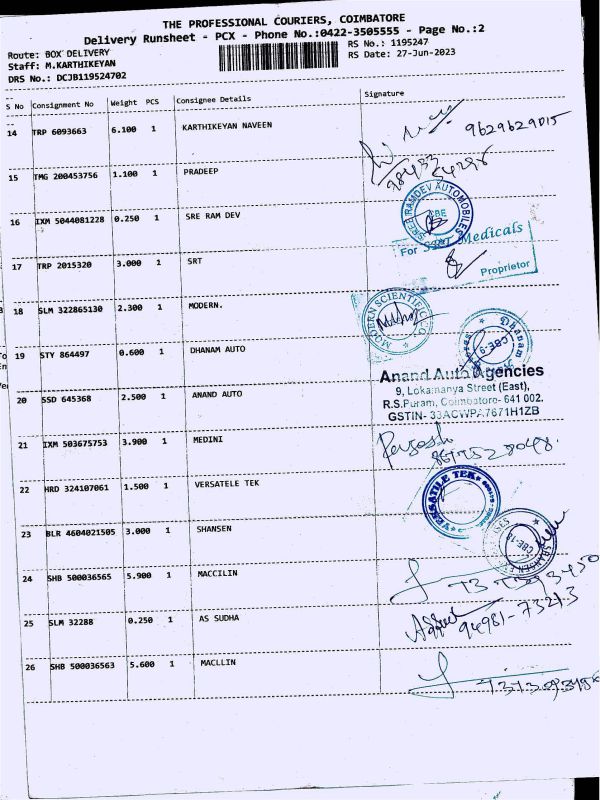 THE PROFESSIONAL COURIERS, COIMBATORE
Delivery Runsheet - PCX - Phone No.:0422-3505555 - Page No.:2
Route: BOX DELIVERY
RS No.: 1195247
Staff: M.KARTHIKEYAN
RS Date: 27-Jun-2023
DRS No.: DCJB119524702
S No Consignment No Weight PCS Consignee Details Signature
14 TRP 6093663 6.100 1 KARTHIKEYAN NAVEEN
9629629015
15 TMG 200453756 1.100 1 PRADEEP
98433
54298
16 IXM 5044081228 0.250 1 SRE RAM DEV
SREE RAMDEV AUTOMOBILES
CBE
17 TRP 2015320 3.000 1 SRT
For SRT Medicals
Proprietor
18 SLM 322865130 2.300 1 MODERN.
MODERN SCIENTIFIC CO.
19 STY 864497 0.600 1 DHANAM AUTO
Dhanam
CBE-9
20 SSD 645368 2.500 1 ANAND AUTO
Anand Auto Agencies
9, Lokamanya Street (East),
R.S.Puram, Coimbatore- 641 002.
GSTIN- 33ACWPA7671H1ZB
21 IXM 503675753 3.900 1 MEDINI
22 HRD 324107061 1.500 1 VERSATELE TEK
VERSATILE TEK
23 BLR 4604021505 3.000 1 SHANSEN
SHANSEN
CBE-18
24 SHB 500036565 5.900 1 MACCILIN
25 SLM 32288 0.250 1 AS SUDHA
94981-73213
26 SHB 500036563 5.600 1 MACLLIN